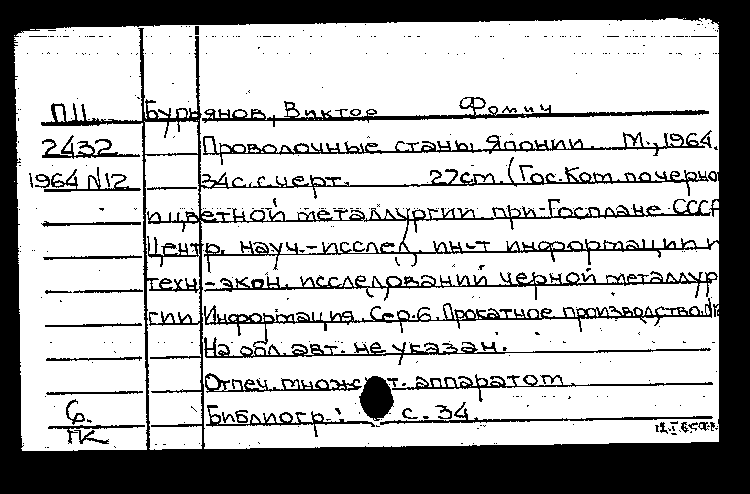 П11 Бурьянов, Виктор Фомич
2432 Проволочные станы Японии. М., 1964.
1964 №12 34с.с черт. 27см. (Гос. Ком. по черно
и цветной металлургии при Госплане СССР
Центр. науч.-исслед. ин-т информации и
техн-экон. исследований черной металлур
гии Информация. Сер.6. Прокатное производство.
На обл. авт. не указан.
Отпеч. множит. аппаратом.
6. Библиогр.: с. 34.
ПК